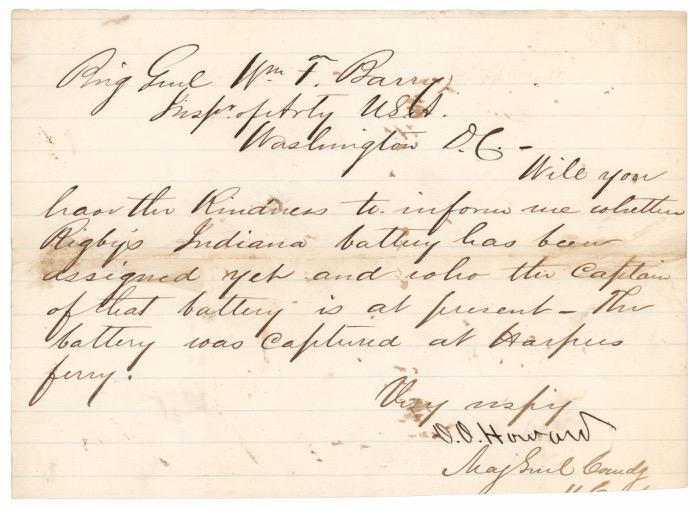 Brig Genl Wm F. Barry
Inspr. of Arty U.S.A.
Washington D.C. -
Will you
have the kindness to inform me whether
Rigby's Indiana battery has been
assigned yet and who the Captain
of that battery is at present - The
battery was captured at Harpers
ferry.
Very respy
O.O. Howard
Maj Genl Comdg